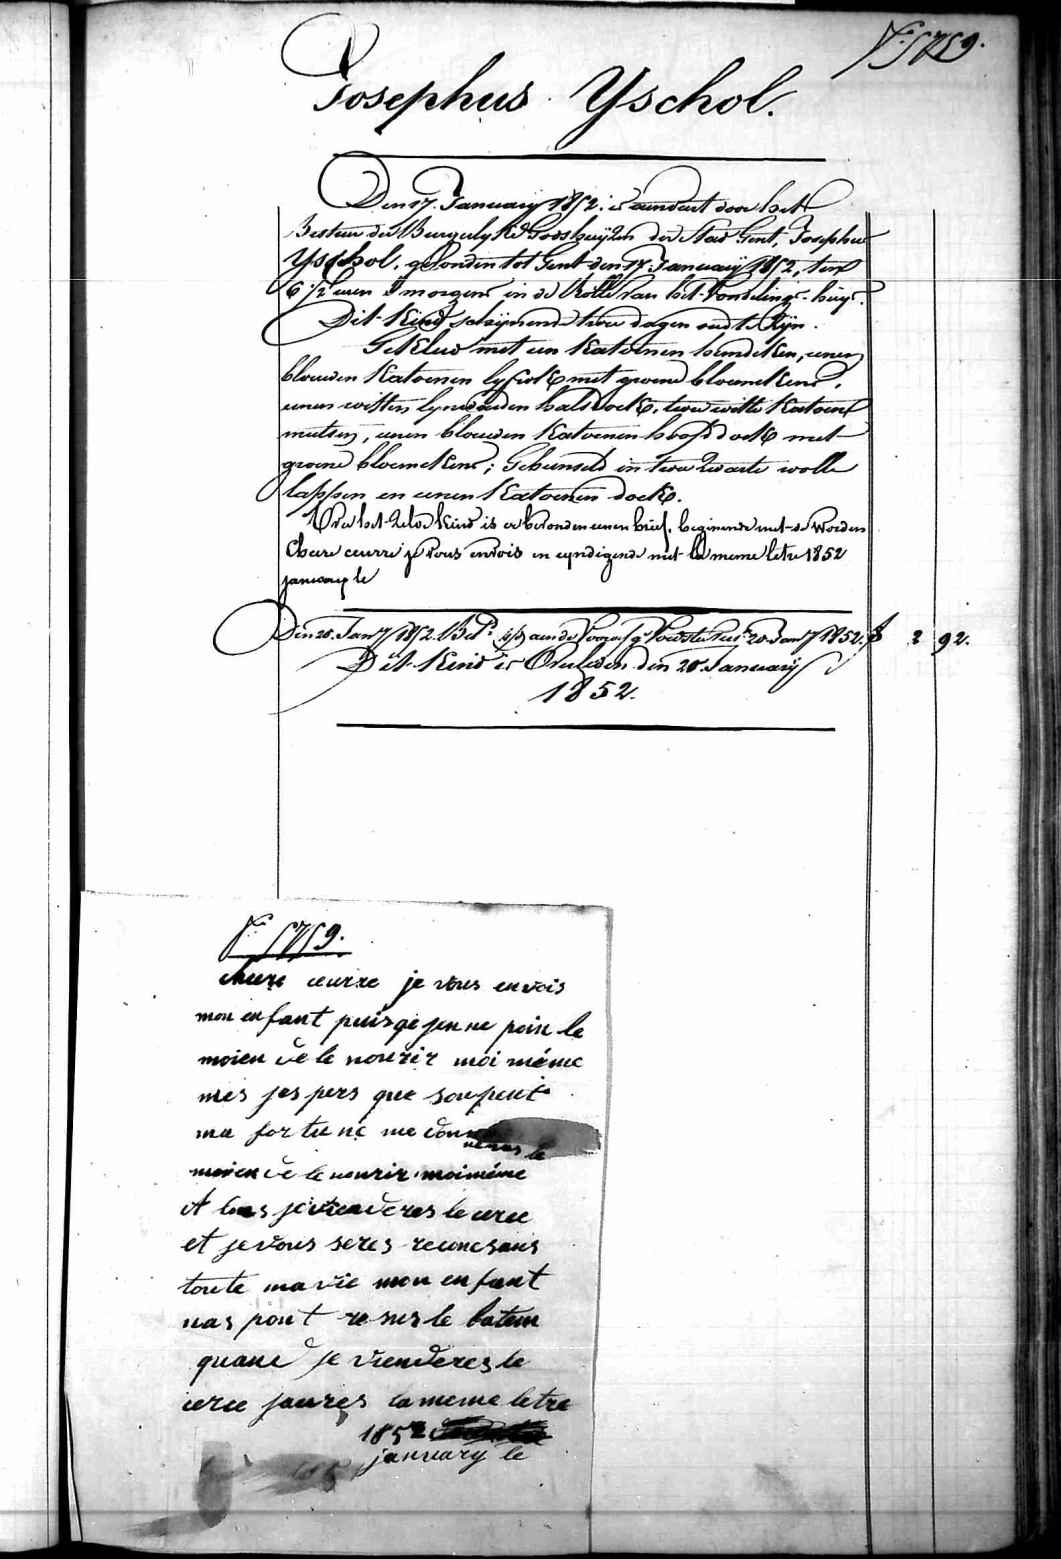 N.º 5759.
Josephus Yschol.
Den 17. January 1852. is aenveert door het
Bestuer der Burgerlyke Godshuyzen der Stad Gent, Josephus
Yschol, gevonden tot Gent den 17 January 1852, ten
6 1/2 uren 's morgens in de Rolle van het Vondelings-huys.
Dit Kind schynende twee dagen oud te Zyn.
Gekleed met een Katoenen hemdeken, eenen
blauwen Katoenen lyfrok met groene bloemekens,
eenen witten lynwaeden halsdoek, twee witte Katoene
mutsen, eenen blauwen Katoenen hoofddoek met
groene bloemekens; Gebunseld in twee Zwarte wolle
lappen en eenen Katoenen doek.
Over het Zelve Kind is er bevonden eenen brief, beginnende met de woorden
Chere ceurre je vous envois en eyndigende met la meme letre 1852
january le
Den 20. Jan.y 1852. aen de 20 Jan.y 1852. f 2 92.
Dit Kind is Overleden den 20 January
1852.
N.º 5759.
chere ceurre je vous envois
mon enfant puisqe jen ne poin le
moien de le nourir moi méme
mes jes pers que
ma fortune me don
neras le
moien de le nourir moiméme
A lors je vienderes le cerce
et je vous seres reconesans
toute ma vie mon enfant
nas pont resus le batem
quand je vienderes le
cerce jaures la meme letre
1852
january le